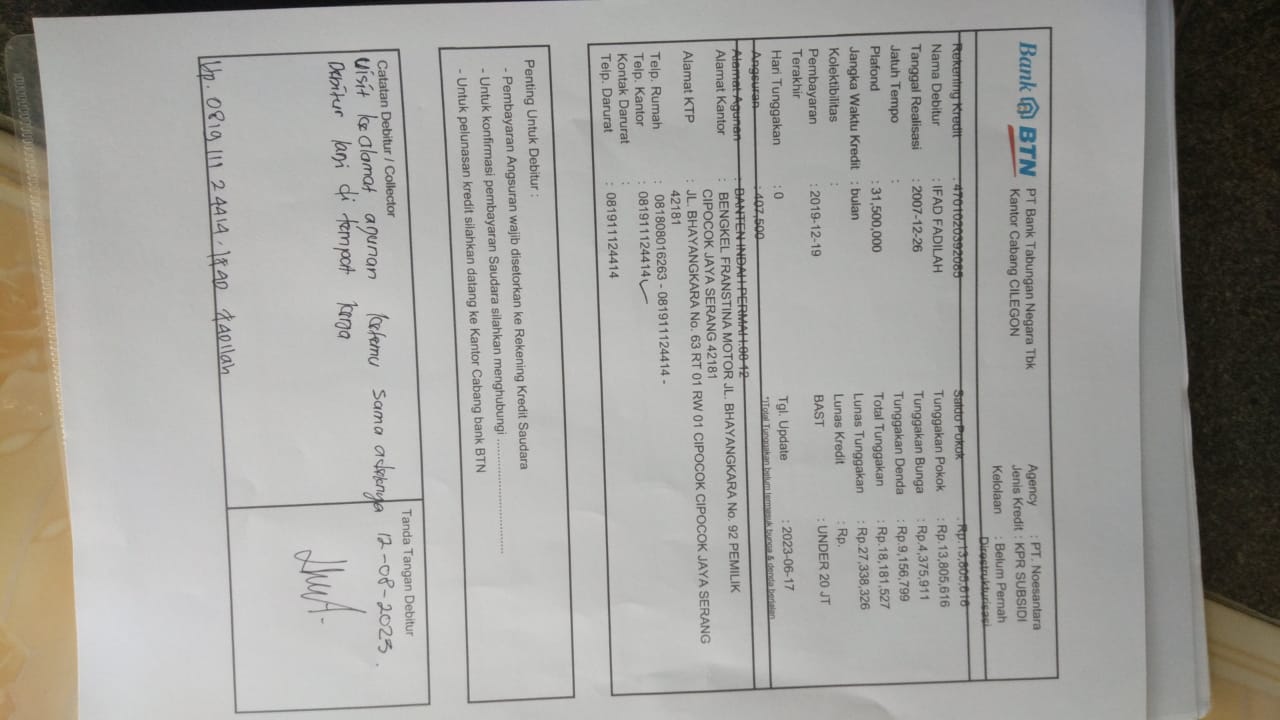 Bank BTN
PT Bank Tabungan Negara Tbk
Kantor Cabang CILEGON
Agency : PT. Noesantara
Jenis Kredit : KPR SUBSIDI
Kelolaan : Belum Pernah
Direstrukturisasi
Rekening Kredit : 4701020392085
Nama Debitur : IFAD FADILAH
Tanggal Realisasi : 2007-12-26
Jatuh Tempo :
Plafond : 31,500,000
Jangka Waktu Kredit : bulan
Kolektibilitas :
Pembayaran : 2019-12-19
Terakhir
Hari Tunggakan : 0
Angsuran : 407,500
Saldo Pokok : Rp.13,805,616
Tunggakan Pokok : Rp.13,805,616
Tunggakan Bunga : Rp.4,375,911
Tunggakan Denda : Rp.9,156,799
Total Tunggakan : Rp.18,181,527
Lunas Tunggakan : Rp.27,338,326
Lunas Kredit : Rp.
BAST : UNDER 20 JT
Tgl. Update : 2023-06-17
*)Total Tunggakan belum termasuk bunga & denda berjalan
Alamat Agunan : BANTEN INDAH PERMAI I.08 12
Alamat Kantor : BENGKEL FRANSTINA MOTOR JL. BHAYANGKARA No. 92 PEMILIK
CIPOCOK JAYA SERANG 42181
Alamat KTP : JL. BHAYANGKARA No. 63 RT 01 RW 01 CIPOCOK CIPOCOK JAYA SERANG
42181
Telp. Rumah : 081808016263 - 081911124414 -
Telp. Kantor : 081911124414
Kontak Darurat :
Telp. Darurat : 081911124414
Penting Untuk Debitur :
- Pembayaran Angsuran wajib disetorkan ke Rekening Kredit Saudara
- Untuk konfirmasi pembayaran Saudara silahkan menghubungi ................................
- Untuk pelunasan kredit silahkan datang ke Kantor Cabang bank BTN
Catatan Debitur / Collector
Tanda Tangan Debitur
Visit kealamat agunan ketemu sama adeknya 12-08-2023.
Debitur lagi di tempat kerja
Hp. 0819 111 2 4414. Ifad Fadilah